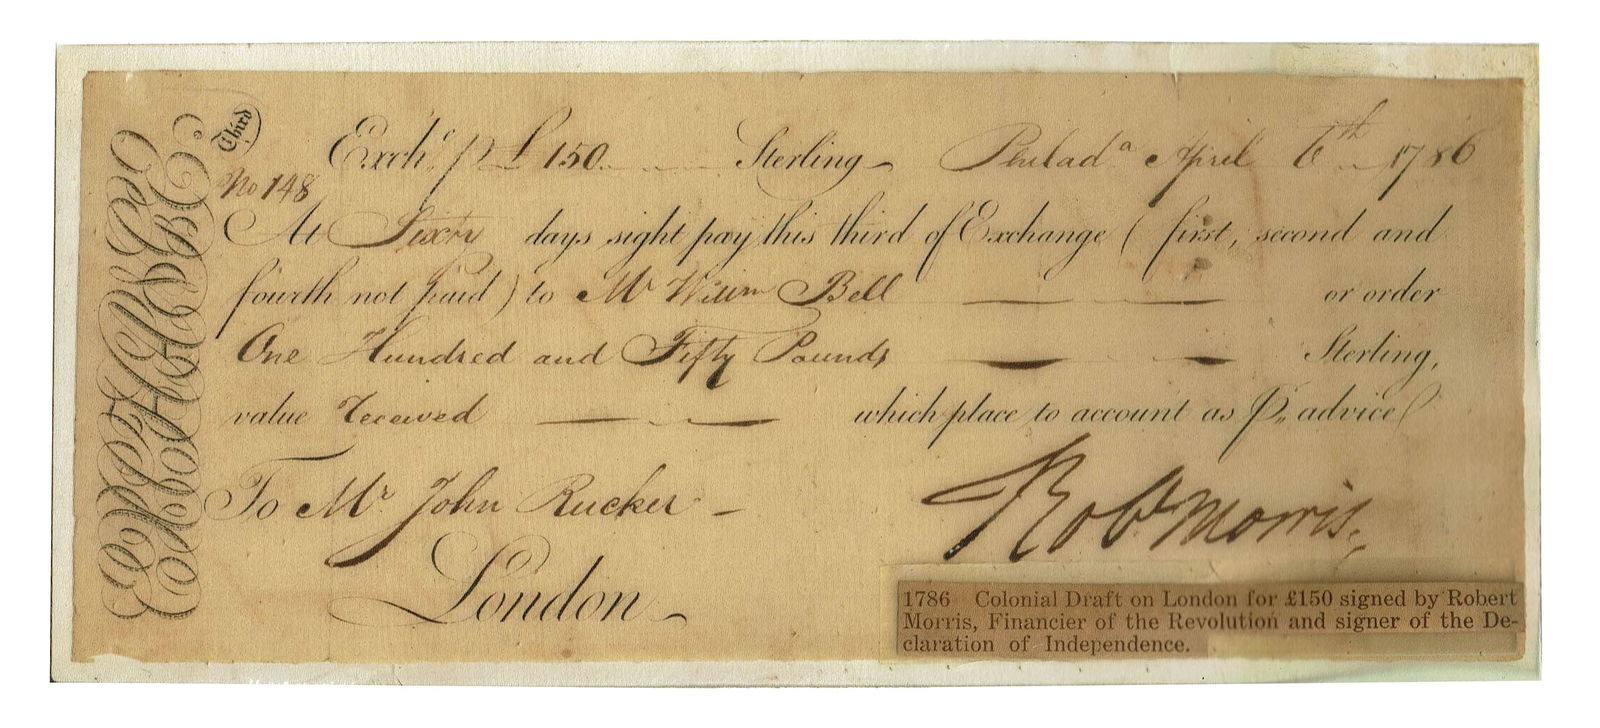 Third
No 148
Exchᵉ p £ 150 Sterling Philadᵃ April 6th 1786
At Sixty days sight pay this third of Exchange ( first, second and
fourth not paid ) to Mr Willm Bell or order
One Hundred and Fifty Pounds Sterling,
value received which place to account as p,, advice
To Mr John Rucker
London
Robt Morris
1786 Colonial Draft on London for £150 signed by Robert
Morris, Financier of the Revolution and signer of the De-
claration of Independence.